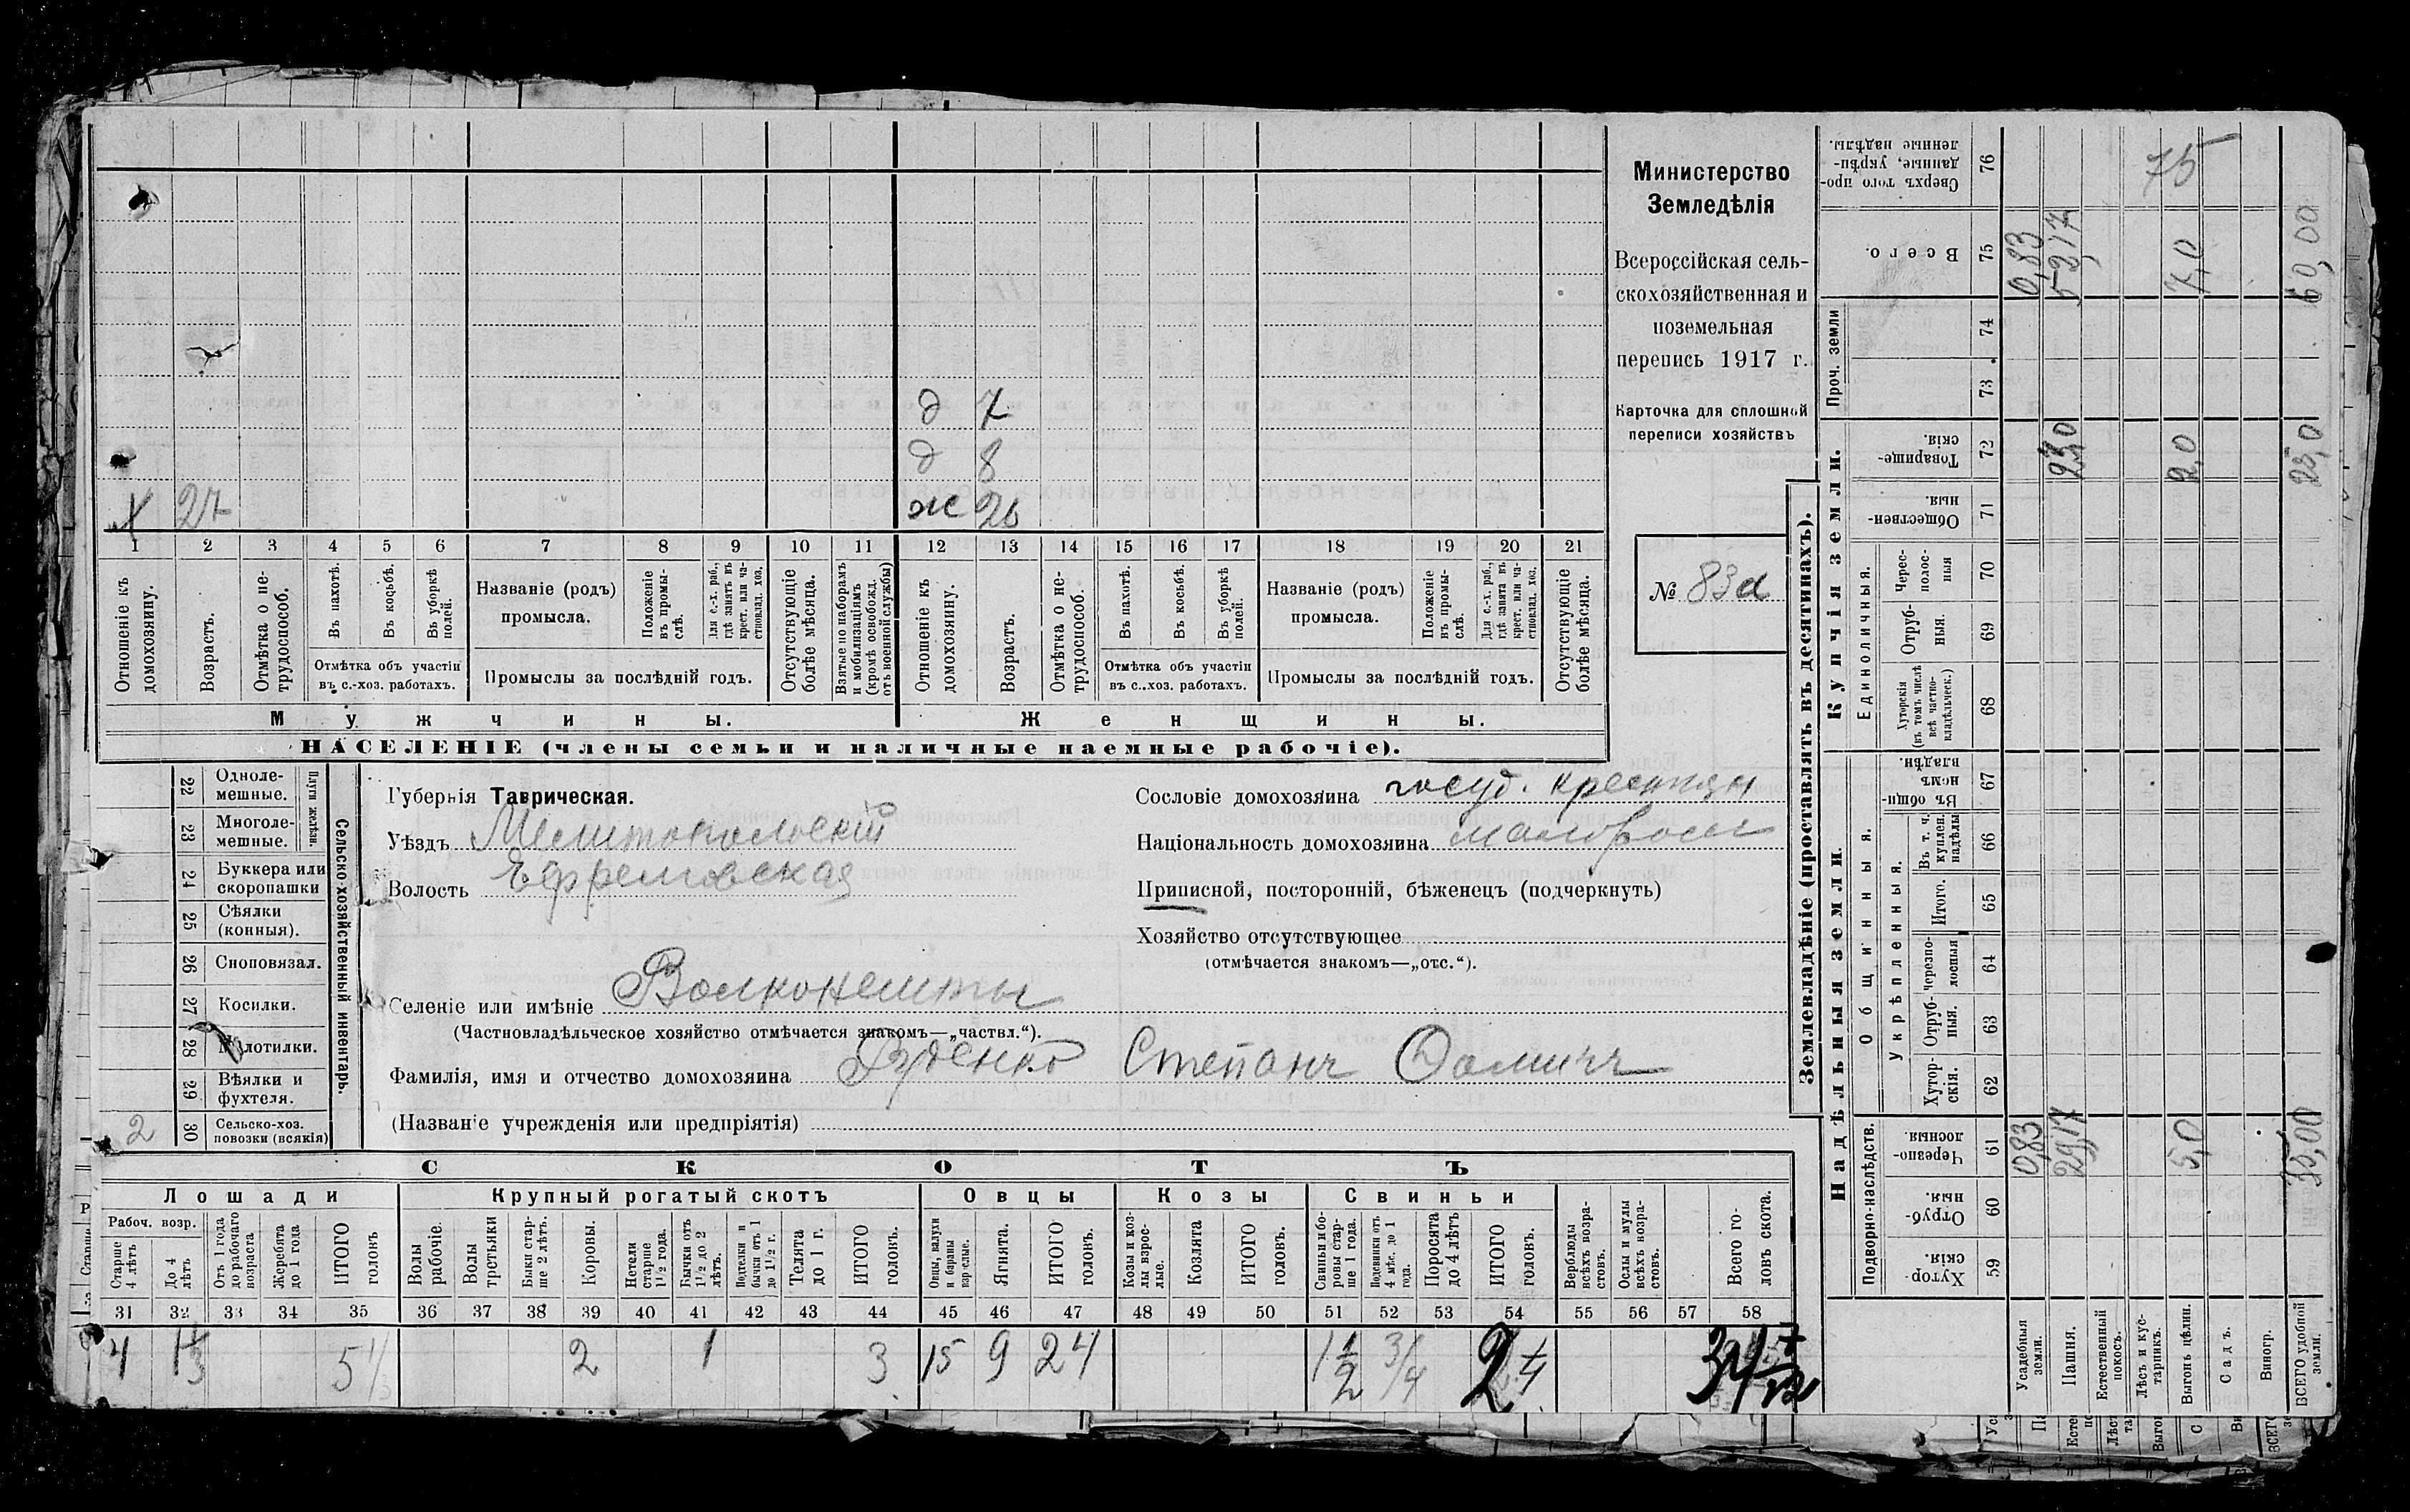 Министерство
Земледѣлія
Всероссійская сель-
скохозяйственная и
поземельная
перепись 1917 г.
Карточка для сплошной
переписи хозяйствъ
№ 83а
д 7
д 8
х 27 ж 26
1 2 3 4 5 6 7 8 9 10 11 12 13 14 15 16 17 18 19 20 21
Отношеніе къ домохозяину.
Возрастъ.
Отмѣтка о не-трудоспособ.
Въ пахотѣ.
Въ косьбѣ.
Въ уборкѣ полей.
Отмѣтка объ участіи
въ с.-хоз. работахъ.
Названіе (родъ)
промысла.
Положеніе въ промы-слѣ.
Для с.-х. раб., гдѣ занятъ въ крест. или ча-стновлад. хоз.
Промыслы за послѣдній годъ.
Отсутствующіе болѣе мѣсяца.
Взятые по наборамъ и мобилизаціямъ (кромѣ освобожд. отъ военной службы)
Отношеніе къ домохозяину.
Возрастъ.
Отмѣтка о не-трудоспособ.
Въ пахотѣ.
Въ косьбѣ.
Въ уборкѣ полей.
Отмѣтка объ участіи
въ с.-хоз. работахъ.
Названіе (родъ)
промысла.
Положеніе въ промы-слѣ.
Для с.-х. раб., гдѣ занята въ крест. или ча-стновлад. хоз.
Промыслы за послѣдній годъ.
Отсутствующіе болѣе мѣсяца.
Мужчины. Женщины.
НАСЕЛЕНІЕ (члены семьи и наличные наемные рабочіе).
Сельско-хозяйственный инвентарь.
Плуги желѣзн.
22 Одноле-мешные.
23 Многоле-мешные.
24 Буккера или скоропашки
25 Сѣялки (конныя).
26 Сноповязал.
27 Косилки.
28 Молотилки.
29 Вѣялки и фухтеля.
2 30 Сельско-хоз. повозки (всякія)
Губернія Таврическая.
Уѣздъ Мелитопольскій
Волость Ефремовская
Селеніе или имѣніе Волконешты
(Частновладѣльческое хозяйство отмѣчается знакомъ—„частвл.“).
Фамилія, имя и отчество домохозяина Руденко Степанъ Фомичъ
(Названіе учрежденія или предпріятія)
Сословіе домохозяина госуд. крестьян
Національность домохозяина малоросс
Приписной, посторонній, бѣженецъ (подчеркнуть)
Хозяйство отсутствующее
(отмѣчается знакомъ—„отс.“).
СКОТЪ
Лошади Крупный рогатый скотъ Овцы Козы Свиньи
Рабоч. возр.
Старше 4 лѣтъ
До 4 лѣтъ
Отъ 1 года до рабочаго возраста
Жеребята до 1 года
ИТОГО головъ
Волы рабочіе
Волы третьяки
Быки стар-ше 2 лѣтъ.
Коровы.
Нетели старше 1½ года.
Бычки отъ 1½ до 2 лѣтъ.
Подтелки и бычки отъ 1 до 1½ г.
Телята до 1 г.
ИТОГО головъ.
Овцы, валухи и бараны взрослые.
Ягнята.
ИТОГО головъ.
Козы и коз-лы взрос-лые.
Козлята
ИТОГО головъ.
Свиньи и бо-ровы стар-ше 1 года.
Подсвинки отъ 4 мѣс. до 1 года.
Поросята до 4 лѣтъ
ИТОГО головъ.
Верблюды всѣхъ возра-стовъ.
Ослы и мулы всѣхъ возра-стовъ.
Всего го-ловъ скота.
31 32 33 34 35 36 37 38 39 40 41 42 43 44 45 46 47 48 49 50 51 52 53 54 55 56 57 58
4 1⅓ 5⅓ 2 1 3 15 9 24 1½ ¾ 2¼ 34 7/12
Землевладѣніе (проставлять въ десятинахъ).
Надѣльныя земли Купчія земли.
Подворно-наслѣдств.
Общинныя.
Укрѣпленныя.
Единоличныя.
Проч. земли
Хутор-скія. 59
Отруб-ныя. 60
Черезпо-лосныя. 61
Хутор-скія. 62
Отруб-ныя. 63
Черезпо-лосныя 64
Итого. 65
Въ т. ч. куплен. надѣлы 66
Въ общи-номъ владѣн. 67
Хуторскія (въ томъ числѣ всѣ частно-владѣльческ.) 68
Отруб-ныя. 69
Черес-полос-ныя 70
Обществен-ныя. 71
Товарище-скія. 72
73
74
Всего. 75
Сверхъ того про-данные, укрѣп-ленные надѣлы. 76
Усадебныя земли. 0,83 0,83
Пашня. 29,17 23,0 52,17
Естественный покосъ.
Лѣсъ и кус-тарникъ.
Выгонъ цѣлин. 5,0 2,0 7,0 75
Садъ.
Виногр.
ВСЕГО удобной земли. 35,00 25,0 60,00